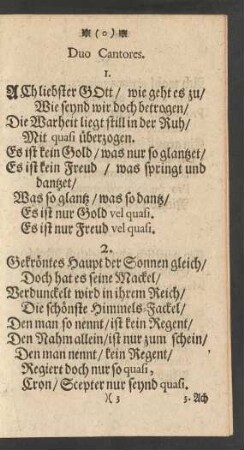 (o)
Duo Cantores.
1.
ACh liebster GOtt / wie geht es zu/
Wie seynd wir doch betrogen/
Die Warheit liegt still in der Ruh/
Mit quasi überzogen.
Es ist kein Gold / was nur so glantzet/
Es ist kein Freud / was springt und
dantzet/
Was so glantz / was so dantz/
Es ist nur Gold vel quasi.
Es ist nur Freud vel quasi.
2.
Gekröntes Haupt der Sonnen gleich/
Doch hat es seine Mackel/
Verdunckelt wird in ihrem Reich/
Die schönste Himmels-Fackel/
Den man so nennt/ ist kein Regent/
Den Nahm allein/ist nur zum schein/
Den man nennt/ kein Regent/
Regiert doch nur so quasi,
Cron/ Scepter nur seynd quasi.
)( 3 3. Ach